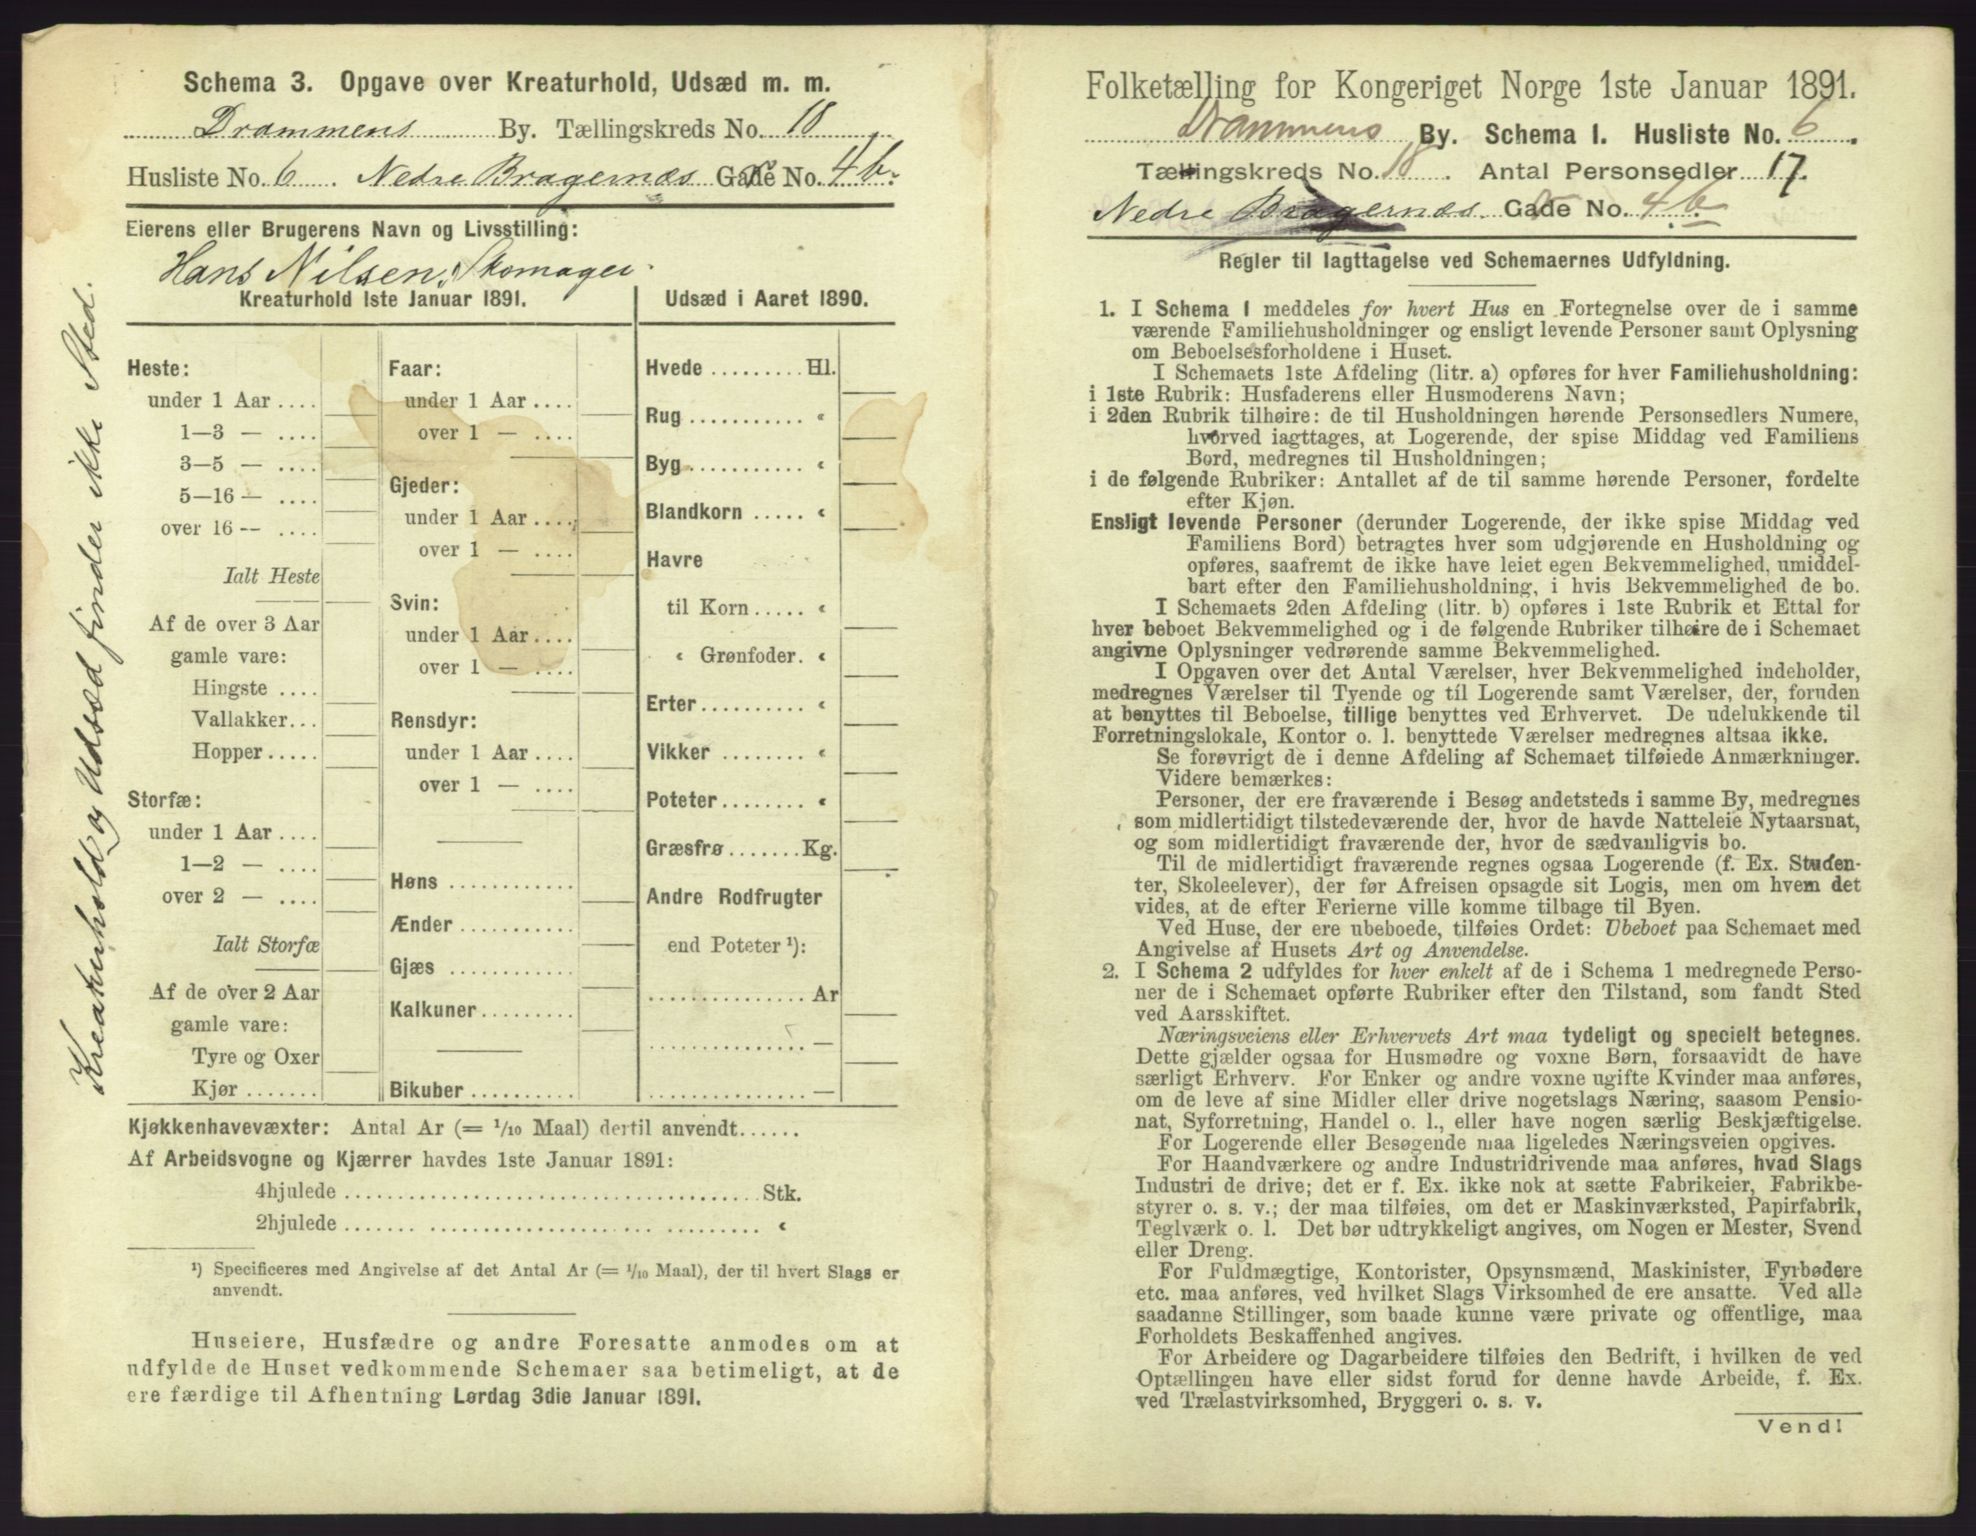 Schema 3. Opgave over Kreaturhold, Udsæd m. m.
Drammens By. Tællingskreds No. 18
Husliste No. 6. Nedre Bragernæs Gade No. 4b.
Eierens eller Brugerens Navn og Livsstilling:
Hans Nilsen, Skomager.
Kreaturhold og Udsæd finder ikke Sted.
Kreaturhold 1ste Januar 1891.
Heste:
under 1 Aar ....
1—3 — ....
3—5 — ....
5—16 — ....
over 16 — ....
Ialt Heste
Af de over 3 Aar
gamle vare:
Hingste ....
Vallakker...
Hopper.....
Storfæ:
under 1 Aar ....
1—2 — ....
over 2 — ....
Ialt Storfæ
Af de over 2 Aar
gamle vare:
Tyre og Oxer
Kjør .......
Faar:
under 1 Aar ....
over 1 — ....
Gjeder:
under 1 Aar ....
over 1 — ....
Svin:
under 1 Aar ....
over 1 — ....
Rensdyr:
under 1 Aar ....
over 1 — ....
Høns ............
Ænder ...........
Gjæs ............
Kalkuner.........
Bikuber ..........
Udsæd i Aaret 1890.
Hvede ......... Hl.
Rug ........... «
Byg........... «
Blandkorn ..... «
Havre
til Korn ..... «
« Grønfoder. «
Erter.......... «
Vikker ........ «
Poteter........ «
Græsfrø....... Kg.
Andre Rodfrugter
end Poteter ¹):
............... Ar
............... —
............... —
Kjøkkenhavevæxter: Antal Ar (= 1/10 Maal) dertil anvendt......
Af Arbeidsvogne og Kjærrer havdes 1ste Januar 1891:
4hjulede ........................................ Stk.
2hjulede ........................................ «
¹) Specificeres med Angivelse af det Antal Ar (= 1/10 Maal), der til hvert Slags er
anvendt.
Huseiere, Husfædre og andre Foresatte anmodes om at
udfylde de Huset vedkommende Schemaer saa betimeligt, at de
ere færdige til Afhentning Lørdag 3die Januar 1891.
Folketælling for Kongeriget Norge 1ste Januar 1891.
Drammens By. Schema 1. Husliste No. 6.
Tællingskreds No. 18. Antal Personsedler 17.
Nedre Bragernæs Gade No. 4b.
Regler til Iagttagelse ved Schemaernes Udfyldning.
1. I Schema 1 meddeles for hvert Hus en Fortegnelse over de i samme
værende Familiehusholdninger og ensligt levende Personer samt Oplysning
om Beboelsesforholdene i Huset.
I Schemaets 1ste Afdeling (litr. a) opføres for hver Familiehusholdning:
i 1ste Rubrik: Husfaderens eller Husmoderens Navn;
i 2den Rubrik tilhøire: de til Husholdningen hørende Personsedlers Numere,
hvorved iagttages, at Logerende, der spise Middag ved Familiens
Bord, medregnes til Husholdningen;
i de følgende Rubriker: Antallet af de til samme hørende Personer, fordelte
efter Kjøn.
Ensligt levende Personer (derunder Logerende, der ikke spise Middag ved
Familiens Bord) betragtes hver som udgjørende en Husholdning og
opføres, saafremt de ikke have leiet egen Bekvemmelighed, umiddel-
bart efter den Familiehusholdning, i hvis Bekvemmelighed de bo.
I Schemaets 2den Afdeling (litr. b) opføres i 1ste Rubrik et Ettal for
hver beboet Bekvemmelighed og i de følgende Rubriker tilhøire de i Schemaet
angivne Oplysninger vedrørende samme Bekvemmelighed.
I Opgaven over det Antal Værelser, hver Bekvemmelighed indeholder,
medregnes Værelser til Tyende og til Logerende samt Værelser, der, foruden
at benyttes til Beboelse, tillige benyttes ved Erhvervet. De udelukkende til
Forretningslokale, Kontor o. l. benyttede Værelser medregnes altsaa ikke.
Se forøvrigt de i denne Afdeling af Schemaet tilføiede Anmærkninger.
Videre bemærkes:
Personer, der ere fraværende i Besøg andetsteds i samme By, medregnes
som midlertidigt tilstedeværende der, hvor de havde Natteleie Nytaarsnat,
og som midlertidigt fraværende der, hvor de sædvanligvis bo.
Til de midlertidigt fraværende regnes ogsaa Logerende (f. Ex. Studen-
ter, Skoleelever), der før Afreisen opsagde sit Logis, men om hvem det
vides, at de efter Ferierne ville komme tilbage til Byen.
Ved Huse, der ere ubeboede, tilføies Ordet: Ubeboet paa Schemaet med
Angivelse af Husets Art og Anvendelse.
2. I Schema 2 udfyldes for hver enkelt af de i Schema 1 medregnede Perso-
ner de i Schemaet opførte Rubriker efter den Tilstand, som fandt Sted
ved Aarsskiftet.
Næringsveiens eller Erhvervets Art maa tydeligt og specielt betegnes.
Dette gjælder ogsaa for Husmødre og voxne Børn, forsaavidt de have
særligt Erhverv. For Enker og andre voxne ugifte Kvinder maa anføres,
om de leve af sine Midler eller drive nogetslags Næring, saasom Pensio-
nat, Syforretning, Handel o. l., eller have nogen særlig Beskjæftigelse.
For Logerende eller Besøgende maa ligeledes Næringsveien opgives.
For Haandværkere og andre Industridrivende maa anføres, hvad Slags
Industri de drive; det er f. Ex. ikke nok at sætte Fabrikeier, Fabrikbe-
styrer o. s. v.; der maa tilføies, om det er Maskinværksted, Papirfabrik,
Teglværk o. l. Det bør udtrykkeligt angives, om Nogen er Mester, Svend
eller Dreng.
For Fuldmægtige, Kontorister, Opsynsmænd, Maskinister, Fyrbødere
etc. maa anføres, ved hvilket Slags Virksomhed de ere ansatte. Ved alle
saadanne Stillinger, som baade kunne være private og offentlige, maa
Forholdets Beskaffenhed angives.
For Arbeidere og Dagarbeidere tilføies den Bedrift, i hvilken de ved
Optællingen have eller sidst forud for denne havde Arbeide, f. Ex.
ved Trælastvirksomhed, Bryggeri o. s. v.
Vend!